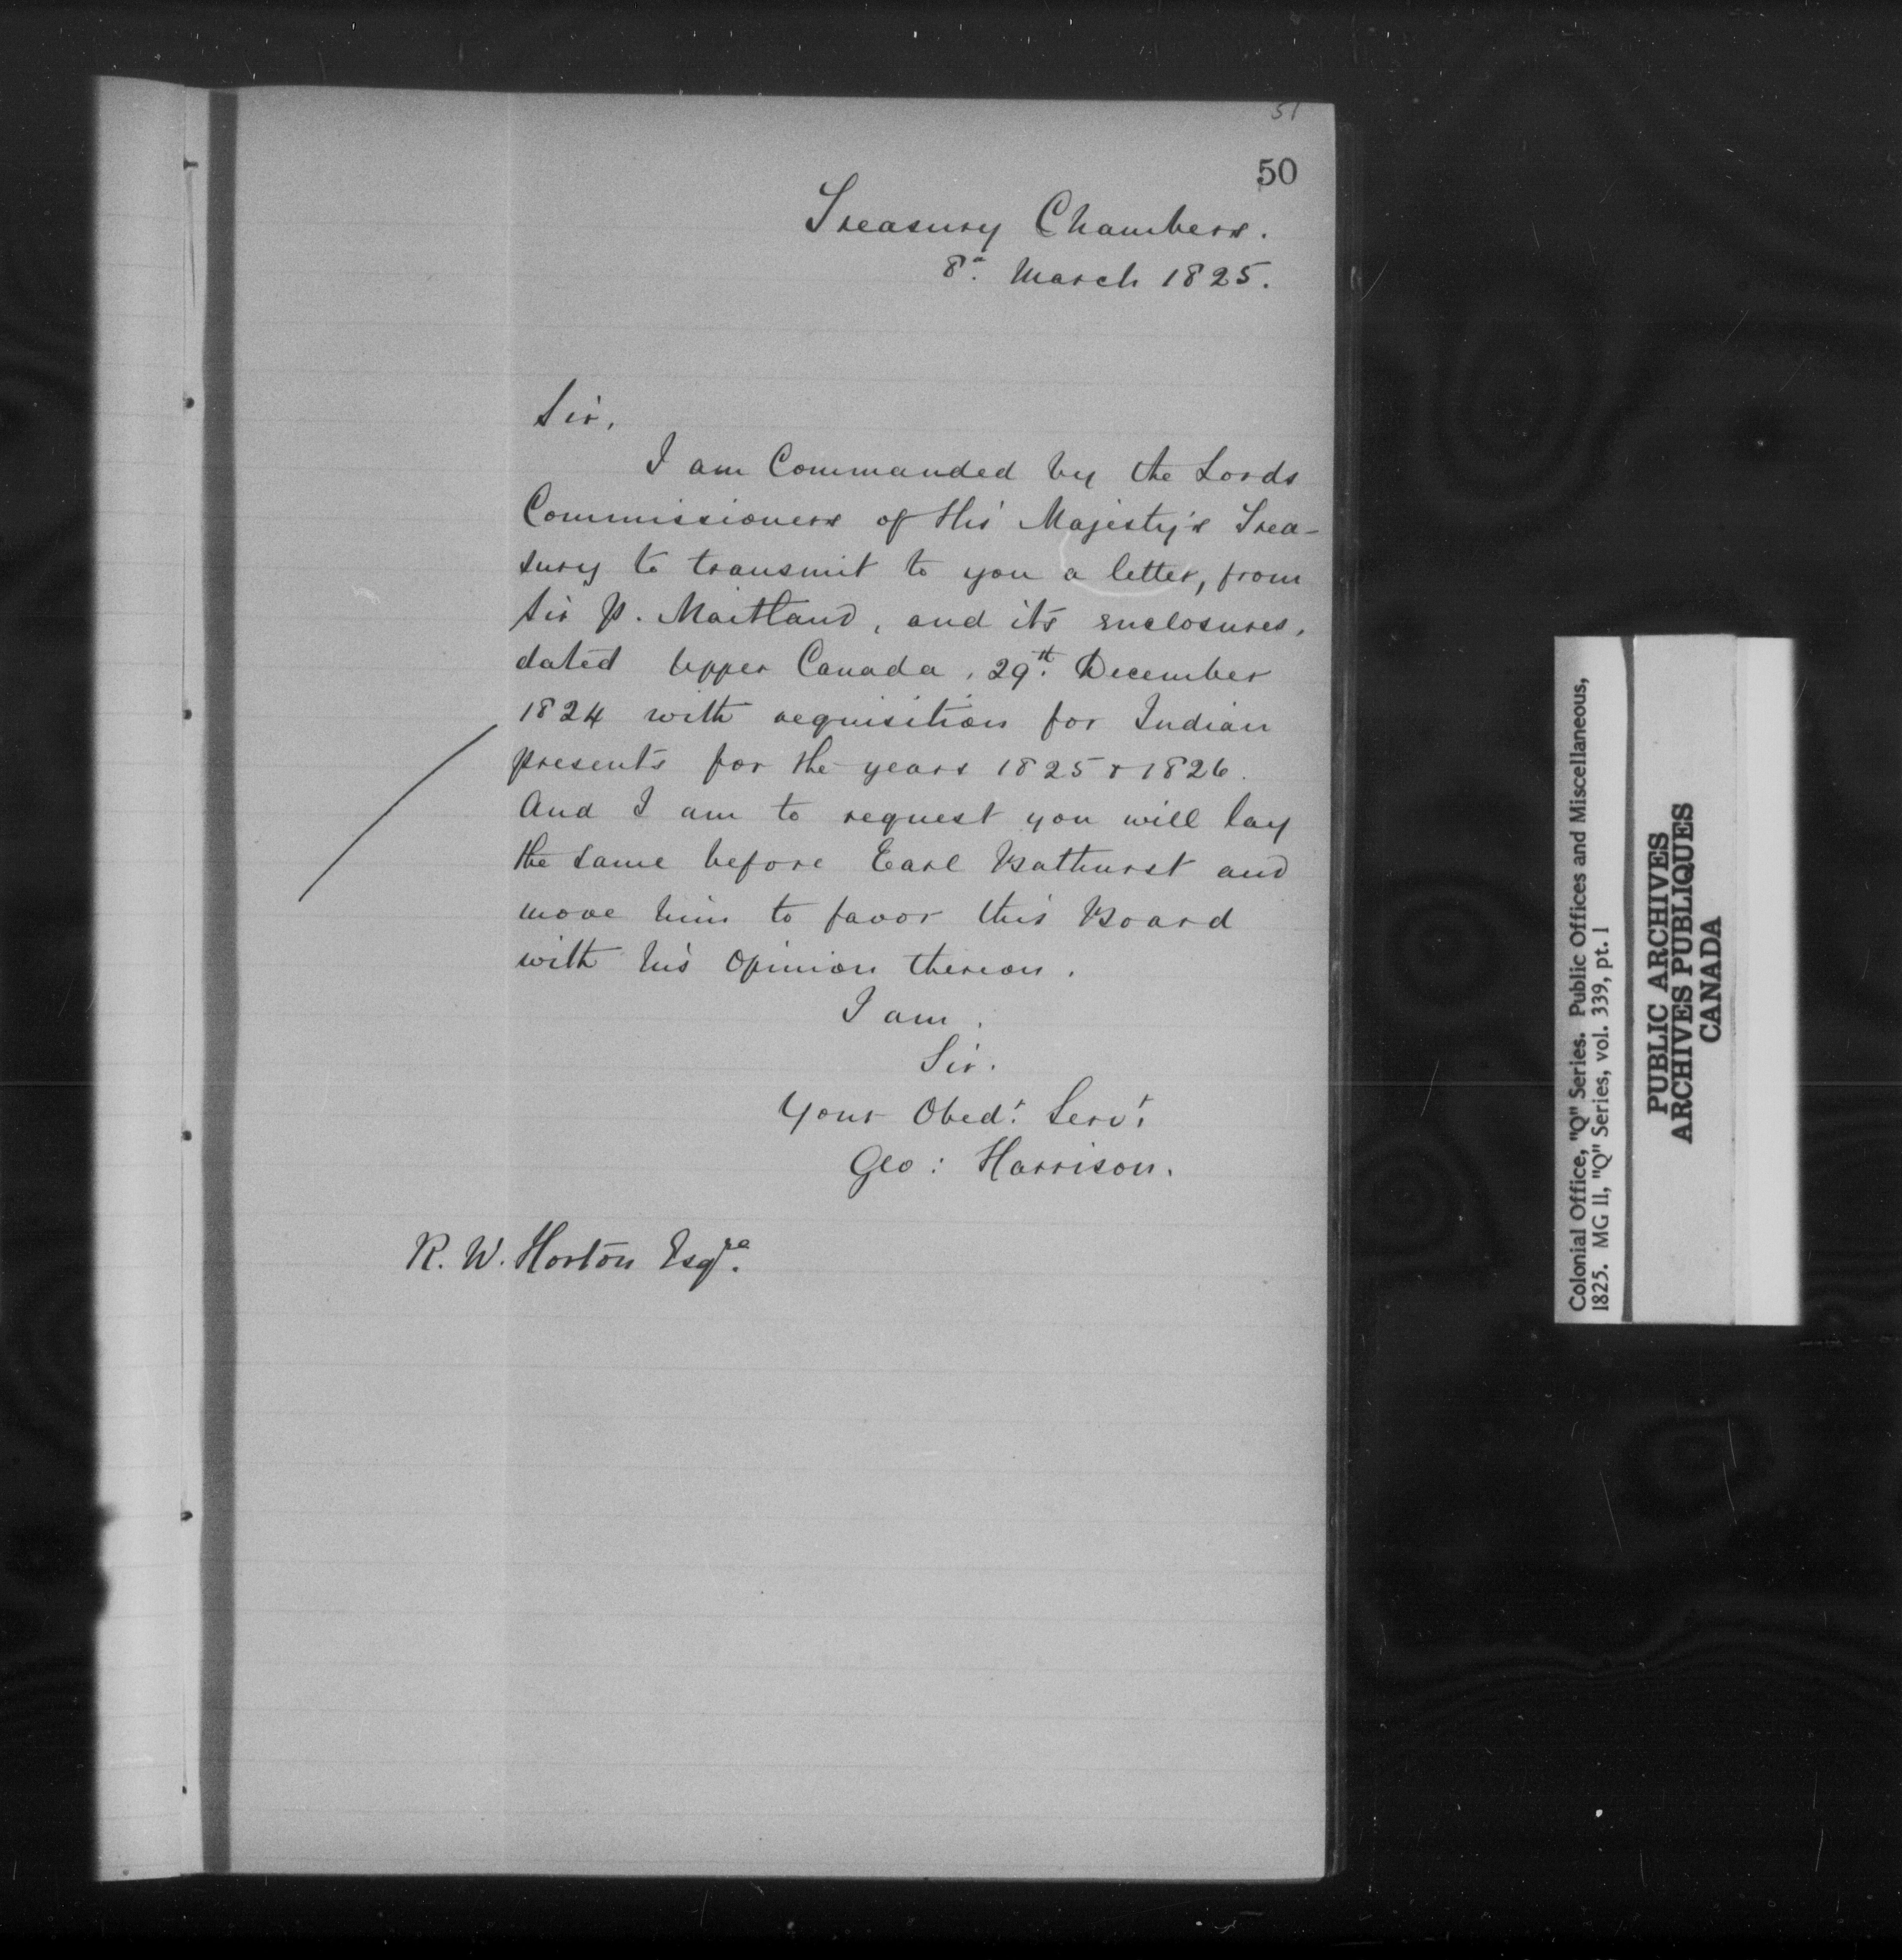 51
50
Treasury Chambers.
8th March 1825.
Sir,
I am Commanded by the Lords
Commissioners of His Majesty's Trea-
sury to transmit to you a letter, from
Sir P. Maitland, and its enclosures,
dated Upper Canada, 29th. December
1824 with requisition for Indian
presents for the years 1825 & 1826.
And I am to request you will lay
the same before Earl Bathurst and
move him to favor this Board
with his opinion thereon.
I am,
Sir.
Your Obedt. Servt.
Geo: Harrison.
R. W. Horton Esqre.
Colonial Office, "Q" Series. Public Offices and Miscellaneous,
1825. MG 11, "Q" Series, vol. 339, pt. 1
PUBLIC ARCHIVES
ARCHIVES PUBLIQUES
CANADA